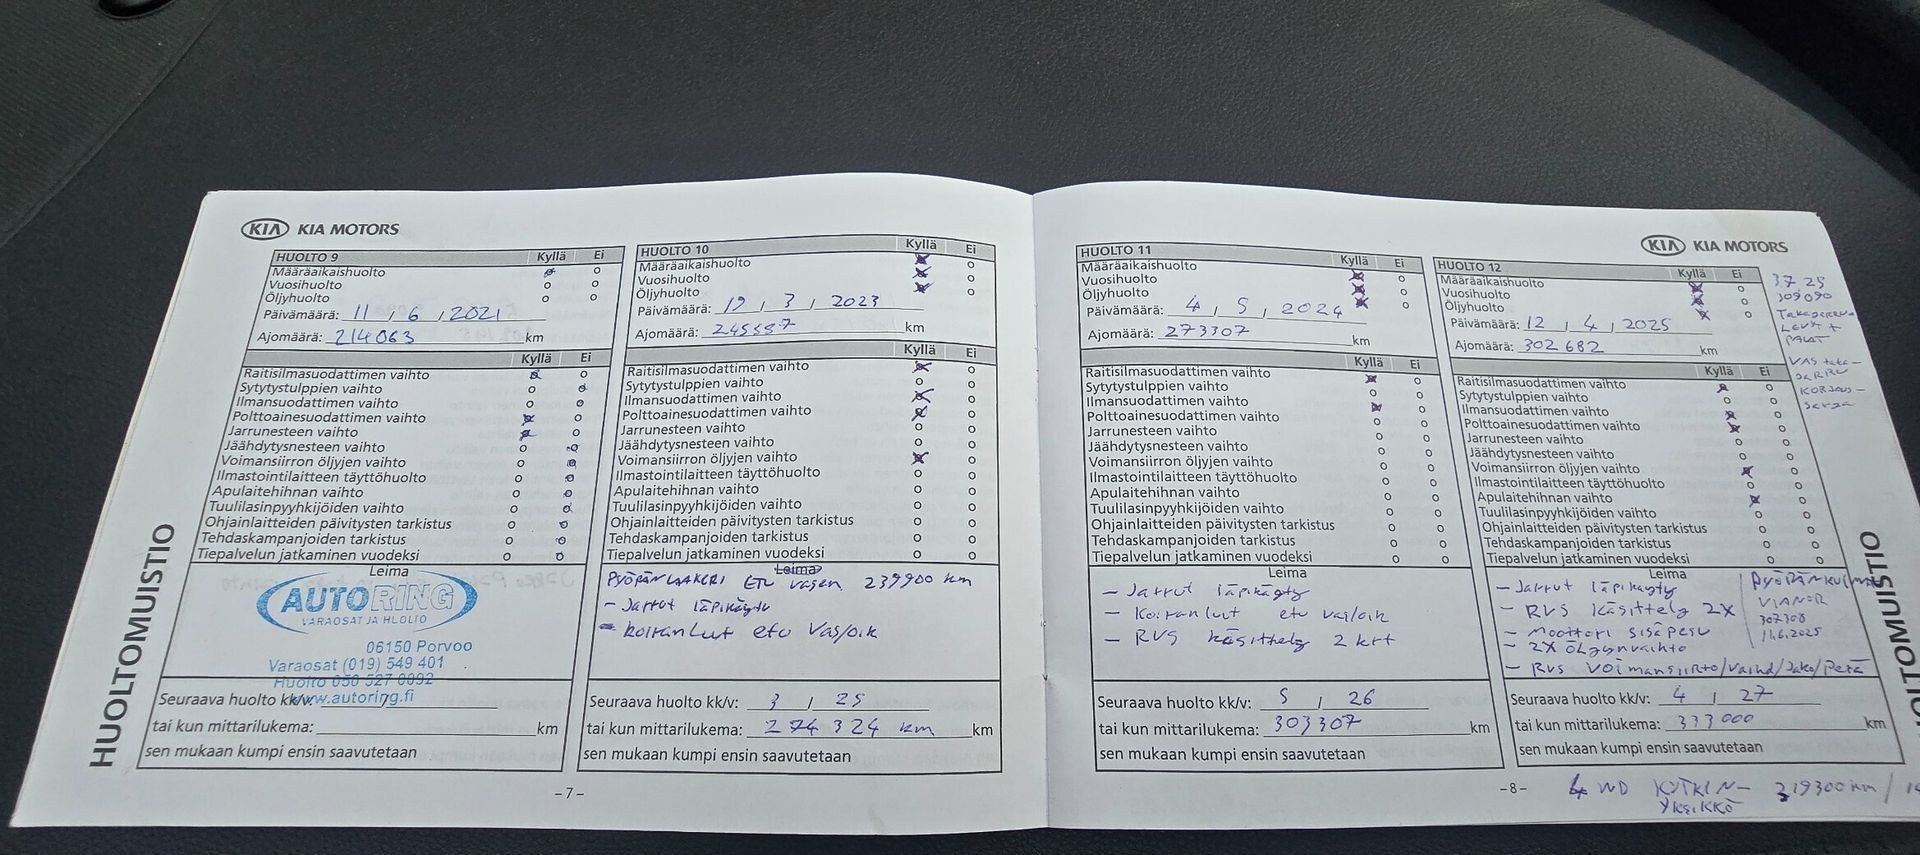 KIA KIA MOTORS
HUOLTOMUISTIO
HUOLTO 9 Kyllä Ei
Määräaikaishuolto
Vuosihuolto
Öljyhuolto
Päivämäärä: 11 / 6 / 2021
Ajomäärä: 214063 km
Kyllä Ei
Raitisilmasuodattimen vaihto
Sytytystulppien vaihto
Ilmansuodattimen vaihto
Polttoainesuodattimen vaihto
Jarrunesteen vaihto
Jäähdytysnesteen vaihto
Voimansiirron öljyjen vaihto
Ilmastointilaitteen täyttöhuolto
Apulaitehihnan vaihto
Tuulilasinpyyhkijöiden vaihto
Ohjainlaitteiden päivitysten tarkistus
Tehdaskampanjoiden tarkistus
Tiepalvelun jatkaminen vuodeksi
Leima
AUTORING
VARAOSAT JA HUOLTO
06150 Porvoo
Varaosat (019) 549 401
Huolto 050 527 0092
www.autoring.fi
Seuraava huolto kk/v: /
tai kun mittarilukema: km
sen mukaan kumpi ensin saavutetaan
HUOLTO 10 Kyllä Ei
Määräaikaishuolto
Vuosihuolto
Öljyhuolto
Päivämäärä: 19 / 3 / 2023
Ajomäärä: 245587 km
Kyllä Ei
Raitisilmasuodattimen vaihto
Sytytystulppien vaihto
Ilmansuodattimen vaihto
Polttoainesuodattimen vaihto
Jarrunesteen vaihto
Jäähdytysnesteen vaihto
Voimansiirron öljyjen vaihto
Ilmastointilaitteen täyttöhuolto
Apulaitehihnan vaihto
Tuulilasinpyyhkijöiden vaihto
Ohjainlaitteiden päivitysten tarkistus
Tehdaskampanjoiden tarkistus
Tiepalvelun jatkaminen vuodeksi
Leima
PYÖRÄNLAAKERI ETU vasen 239900 km
- Jarrut läpikäyty
- koiranluut etu vas/oik
Seuraava huolto kk/v: 3 / 25
tai kun mittarilukema: 274 324 km km
sen mukaan kumpi ensin saavutetaan
- 7 -
KIA KIA MOTORS
HUOLTOMUISTIO
HUOLTO 11 Kyllä Ei
Määräaikaishuolto
Vuosihuolto
Öljyhuolto
Päivämäärä: 4 / 5 / 2024
Ajomäärä: 273307 km
Kyllä Ei
Raitisilmasuodattimen vaihto
Sytytystulppien vaihto
Ilmansuodattimen vaihto
Polttoainesuodattimen vaihto
Jarrunesteen vaihto
Jäähdytysnesteen vaihto
Voimansiirron öljyjen vaihto
Ilmastointilaitteen täyttöhuolto
Apulaitehihnan vaihto
Tuulilasinpyyhkijöiden vaihto
Ohjainlaitteiden päivitysten tarkistus
Tehdaskampanjoiden tarkistus
Tiepalvelun jatkaminen vuodeksi
Leima
- Jarrut läpikäyty
- Koiranluut etu vas/oik
- RVS käsittely 2 krt
Seuraava huolto kk/v: 5 / 26
tai kun mittarilukema: 303307 km
sen mukaan kumpi ensin saavutetaan
HUOLTO 12 Kyllä Ei
Määräaikaishuolto
Vuosihuolto
Öljyhuolto
Päivämäärä: 12 / 4 / 2025
Ajomäärä: 302 682 km
Kyllä Ei
Raitisilmasuodattimen vaihto
Sytytystulppien vaihto
Ilmansuodattimen vaihto
Polttoainesuodattimen vaihto
Jarrunesteen vaihto
Jäähdytysnesteen vaihto
Voimansiirron öljyjen vaihto
Ilmastointilaitteen täyttöhuolto
Apulaitehihnan vaihto
Tuulilasinpyyhkijöiden vaihto
Ohjainlaitteiden päivitysten tarkistus
Tehdaskampanjoiden tarkistus
Tiepalvelun jatkaminen vuodeksi
Leima
- Jarrut läpikäyty
- RVS käsittely 2X
- Moottori sisäpesu
- 2X öljynvaihto
- RVS voimansiirto/vaihd/Jako/Perä
VIANOR
307308
11.6.2025
Seuraava huolto kk/v: 4 / 27
tai kun mittarilukema: 333000 km
sen mukaan kumpi ensin saavutetaan
3.7.25
309090
LEVYT +
PALAT
VAS taka-
JARRU
KORJAUS-
sarja
- 8 -
4WD KYTKIN- 319300 km /
YKSIKKÖ